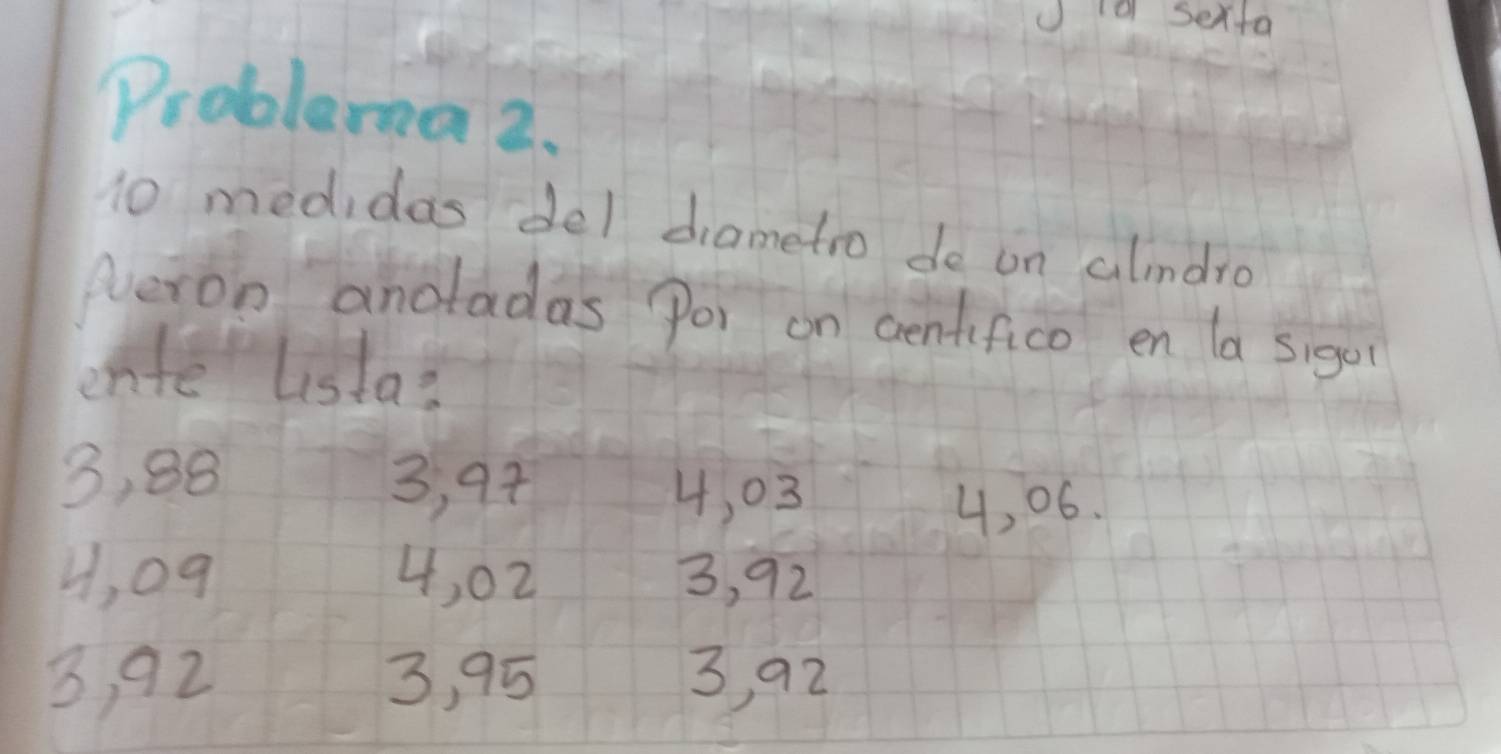 y la sexta
Problema 2.
10 medidas del diametro de un cilindro
fueron anotadas por un cientifico en la sigui
ente lista:
3,88 3,97 4,03 4,06.
4,09 4,02 3,92
3,92 3,95 3,92